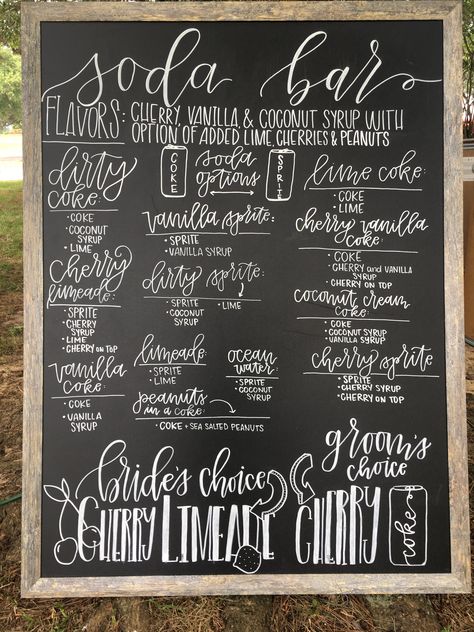 soda bar
FLAVORS: CHERRY, VANILLA, & COCONUT SYRUP WITH
OPTION OF ADDED LIME, CHERRIES & PEANUTS
COKE
soda
options
SPRITE
dirty
coke:
• COKE
• COCONUT
SYRUP
• LIME
cherry
limeade:
• SPRITE
• CHERRY
SYRUP
• LIME
• CHERRY ON TOP
vanilla
coke:
• COKE
• VANILLA
SYRUP
vanilla sprite:
• SPRITE
• VANILLA SYRUP
dirty sprite:
• SPRITE
• COCONUT
SYRUP
• LIME
limeade:
• SPRITE
• LIME
ocean
water:
• SPRITE
• COCONUT
SYRUP
peanuts
in a coke:
• COKE + SEA SALTED PEANUTS
lime coke:
• COKE
• LIME
cherry vanilla
coke:
• COKE
• CHERRY and VANILLA
SYRUP
• CHERRY ON TOP
coconut cream
coke:
• COKE
• COCONUT SYRUP
• VANILLA SYRUP
cherry sprite:
• SPRITE
• CHERRY SYRUP
• CHERRY ON TOP
bride's choice
CHERRY LIMEADE
groom's
choice
CHERRY
coke